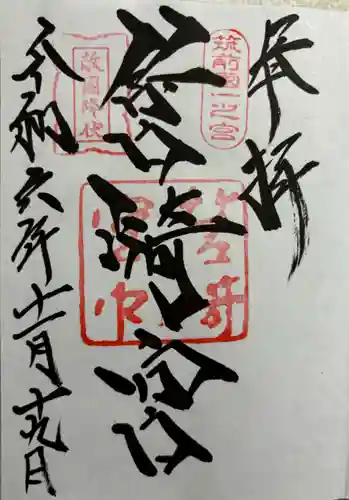 奉拝
筑前國一之宮
筥崎宮
筥崎
宮印
敵國降伏
令和六年十一月十九日